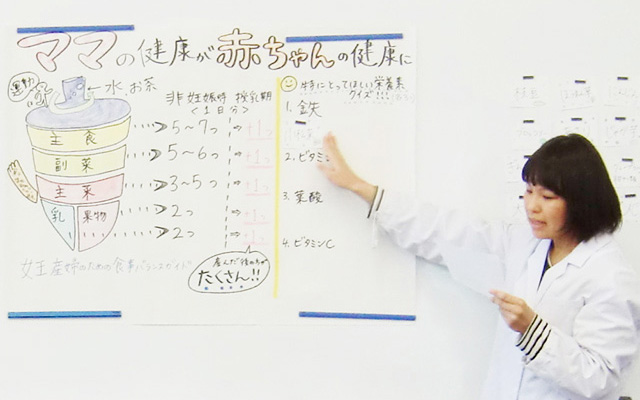 ママの健康が赤ちゃんの健康に
運動
水、お茶
非妊娠時 授乳期
<1日分>
主食 5~7つ ⇒ +1つ
副菜 5~6つ ⇒ +1つ
主菜 3~5つ ⇒ +1つ
乳 果物
2つ ⇒ +1つ
2つ ⇒ +1つ
産んだ後の方が
たくさん!!
特にとってほしい栄養素
クイズ!!!
1. 鉄
2. ビタミン
3. 葉酸
4. ビタミンC